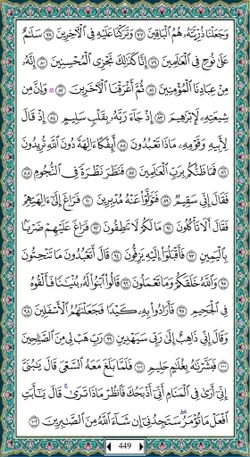 وَجَعَلْنَا ذُرِّيَّتَهُۥ هُمُ ٱلْبَاقِينَ ٧٧ وَتَرَكْنَا عَلَيْهِ فِى ٱلْءَاخِرِينَ ٧٨ سَلَٰمٌ
عَلَىٰ نُوحٍ فِى ٱلْعَٰلَمِينَ ٧٩ إِنَّا كَذَٰلِكَ نَجْزِى ٱلْمُحْسِنِينَ ٨٠ إِنَّهُۥ
مِنْ عِبَادِنَا ٱلْمُؤْمِنِينَ ٨١ ثُمَّ أَغْرَقْنَا ٱلْءَاخَرِينَ ٨٢ ۞ وَإِنَّ مِن
شِيعَتِهِۦ لَإِبْرَٰهِيمَ ٨٣ إِذْ جَآءَ رَبَّهُۥ بِقَلْبٍ سَلِيمٍ ٨٤ إِذْ قَالَ
لِأَبِيهِ وَقَوْمِهِۦ مَاذَا تَعْبُدُونَ ٨٥ أَئِفْكًا ءَالِهَةً دُونَ ٱللَّهِ تُرِيدُونَ
٨٦ فَمَا ظَنُّكُم بِرَبِّ ٱلْعَٰلَمِينَ ٨٧ فَنَظَرَ نَظْرَةً فِى ٱلنُّجُومِ ٨٨
فَقَالَ إِنِّى سَقِيمٌ ٨٩ فَتَوَلَّوْا۟ عَنْهُ مُدْبِرِينَ ٩٠ فَرَاغَ إِلَىٰٓ ءَالِهَتِهِمْ
فَقَالَ أَلَا تَأْكُلُونَ ٩١ مَا لَكُمْ لَا تَنطِقُونَ ٩٢ فَرَاغَ عَلَيْهِمْ ضَرْبًۢا
بِٱلْيَمِينِ ٩٣ فَأَقْبَلُوٓا۟ إِلَيْهِ يَزِفُّونَ ٩٤ قَالَ أَتَعْبُدُونَ مَا تَنْحِتُونَ
٩٥ وَٱللَّهُ خَلَقَكُمْ وَمَا تَعْمَلُونَ ٩٦ قَالُوا۟ ٱبْنُوا۟ لَهُۥ بُنْيَٰنًا فَأَلْقُوهُ
فِى ٱلْجَحِيمِ ٩٧ فَأَرَادُوا۟ بِهِۦ كَيْدًا فَجَعَلْنَٰهُمُ ٱلْأَسْفَلِينَ ٩٨
وَقَالَ إِنِّى ذَاهِبٌ إِلَىٰ رَبِّى سَيَهْدِينِ ٩٩ رَبِّ هَبْ لِى مِنَ ٱلصَّٰلِحِينَ
١٠٠ فَبَشَّرْنَٰهُ بِغُلَٰمٍ حَلِيمٍ ١٠١ فَلَمَّا بَلَغَ مَعَهُ ٱلسَّعْىَ قَالَ يَٰبُنَىَّ
إِنِّىٓ أَرَىٰ فِى ٱلْمَنَامِ أَنِّىٓ أَذْبَحُكَ فَٱنظُرْ مَاذَا تَرَىٰ ۚ قَالَ يَٰٓأَبَتِ
ٱفْعَلْ مَا تُؤْمَرُ ۖ سَتَجِدُنِىٓ إِن شَآءَ ٱللَّهُ مِنَ ٱلصَّٰبِرِينَ ١٠٢
449